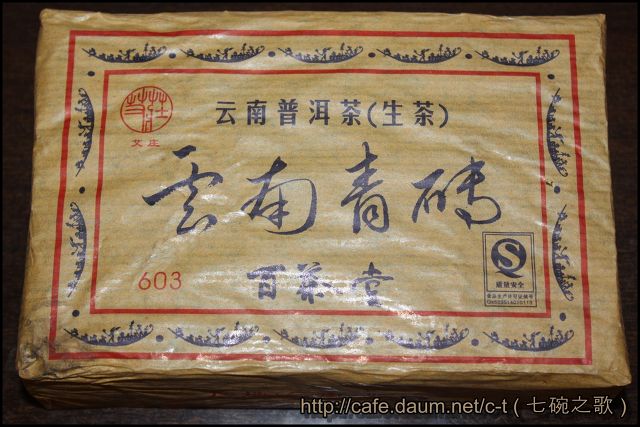 云南普洱茶(生茶)
艾庄
雲南青砖
603
百茶堂
质量安全
http://cafe.daum.net/c-t ( 七碗之歌 )